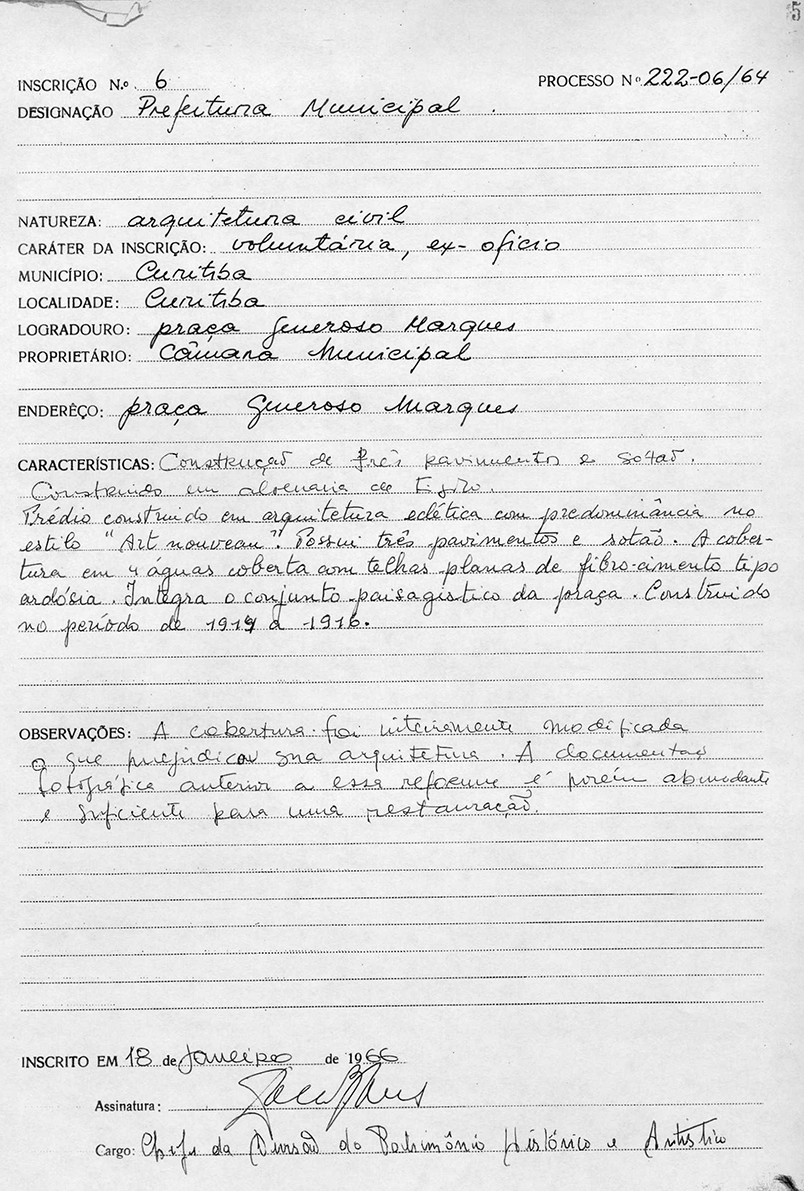 5
INSCRIÇÃO N.º 6 PROCESSO Nº 222-06/64
DESIGNAÇÃO Prefeitura Municipal.
NATUREZA: arquitetura civil
CARÁTER DA INSCRIÇÃO: voluntária, ex-oficio
MUNICÍPIO: Curitiba
LOCALIDADE: Curitiba
LOGRADOURO: praça Generoso Marques
PROPRIETÁRIO: Câmara Municipal
ENDERÊÇO: praça Generoso Marques
CARACTERÍSTICAS: Construção de três pavimentos e sotão.
Construido em alvenaria de tijolo.
Prédio construido em arquitetura eclética com predominância no
estilo "Art nouveau". Possui três pavimentos e sotão. A cober-
tura em 4 águas coberta com telhas planas de fibro-cimento tipo
ardósia. Integra o conjunto paisagístico da praça. Construido
no período de 1914 a 1916.
OBSERVAÇÕES: A cobertura foi inteiramente modificada
o que prejudicou sua arquitetura. A documentação
fotográfica anterior a essa reforma é porém abundante
e suficiente para uma restauração.
INSCRITO EM 18 de Janeiro de 1966
Assinatura:
Cargo: Chefe da Divisão do Patrimônio Histórico e Artístico